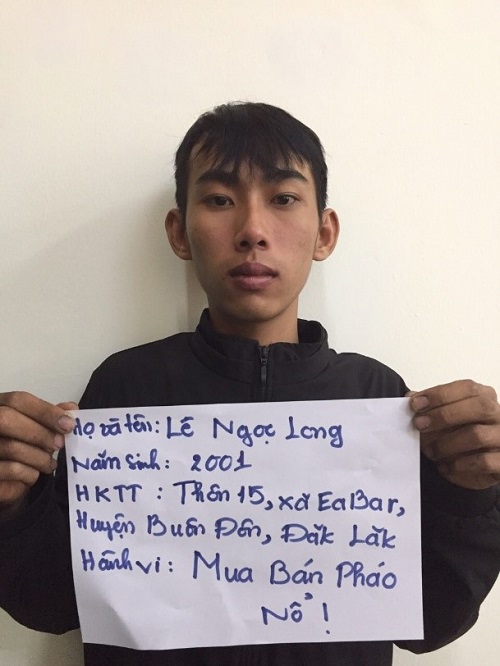 Họ và tên: Lê Ngọc Long
Năm sinh: 2001
HKTT: Thôn 15, xã EaBar,
Huyện Buôn Đôn, Đăk Lăk
Hành vi: Mua Bán Pháo
Nổ!